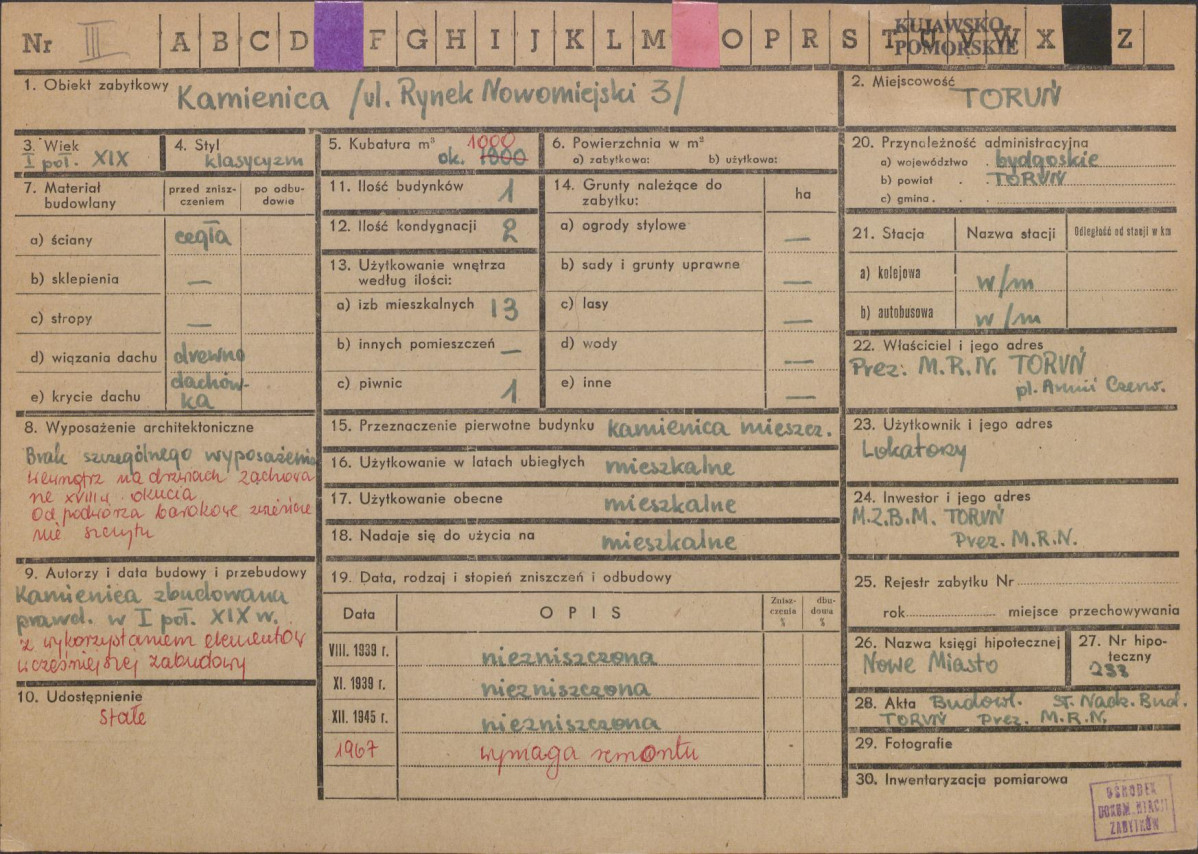 Nr III A B C D F G H I J K L M O P R S T U V W X Z
KUJAWSKO-
POMORSKIE
1. Obiekt zabytkowy Kamienica /ul. Rynek Nowomiejski 3/
2. Miejscowość
TORUŃ
3. Wiek
I poł. XIX
4. Styl
klasycyzm
5. Kubatura m³ 1000
ok. 1800
6. Powierzchnia w m²
a) zabytkowa: b) użytkowa:
7. Materiał
budowlany
przed znisz-
czeniem
po odbu-
dowie
a) ściany cegła
b) sklepienia —
c) stropy —
d) wiązania dachu drewno
e) krycie dachu dachów-
ka
8. Wyposażenie architektoniczne
Brak szczególnego wyposażenia
wewnątrz na drzwiach zachowa
ne XVIII w. okucia
Od podwórza barokowe zwieńcze
nie szczytu
9. Autorzy i data budowy i przebudowy
Kamienica zbudowana
prawd. w I poł. XIX w.
z wykorzystaniem elementów
wcześniejszej zabudowy
10. Udostępnienie
stałe
11. Ilość budynków 1
12. Ilość kondygnacji 2
13. Użytkowanie wnętrza
według ilości:
a) izb mieszkalnych 13
b) innych pomieszczeń —
c) piwnic 1
14. Grunty należące do
zabytku:
ha
a) ogrody stylowe —
b) sady i grunty uprawne —
c) lasy —
d) wody —
e) inne —
15. Przeznaczenie pierwotne budynku kamienica mieszcz.
16. Użytkowanie w latach ubiegłych mieszkalne
17. Użytkowanie obecne mieszkalne
18. Nadaje się do użycia na mieszkalne
19. Data, rodzaj i stopień zniszczeń i odbudowy
Data
OPIS
Znisz-
czenia
%
dbu-
dowa
%
VIII. 1939 r. niezniszczona
XI. 1939 r. niezniszczona
XII. 1945 r. niezniszczona
1967 wymaga remontu -
20. Przynależność administracyjna
a) województwo bydgoskie
b) powiat TORUŃ
c) gmina
21. Stacja
Nazwa stacji
Odległość od stacji w km
a) kolejowa w/m
b) autobusowa w/m
22. Właściciel i jego adres
Prez. M.R.N. TORUŃ
pl. Armii Czerw.
23. Użytkownik i jego adres
Lokatorzy
24. Inwestor i jego adres
M.Z.B.M. TORUŃ
Prez. M.R.N.
25. Rejestr zabytku Nr
rok miejsce przechowywania
26. Nazwa księgi hipotecznej
Nowe Miasto
27. Nr hipo-
teczny
233
28. Akta Budowl. St. Nadz. Bud.
TORUŃ Prez. M.R.N.
29. Fotografie
30. Inwentaryzacja pomiarowa
OŚRODEK
DOKUMENTACJI
ZABYTKÓW